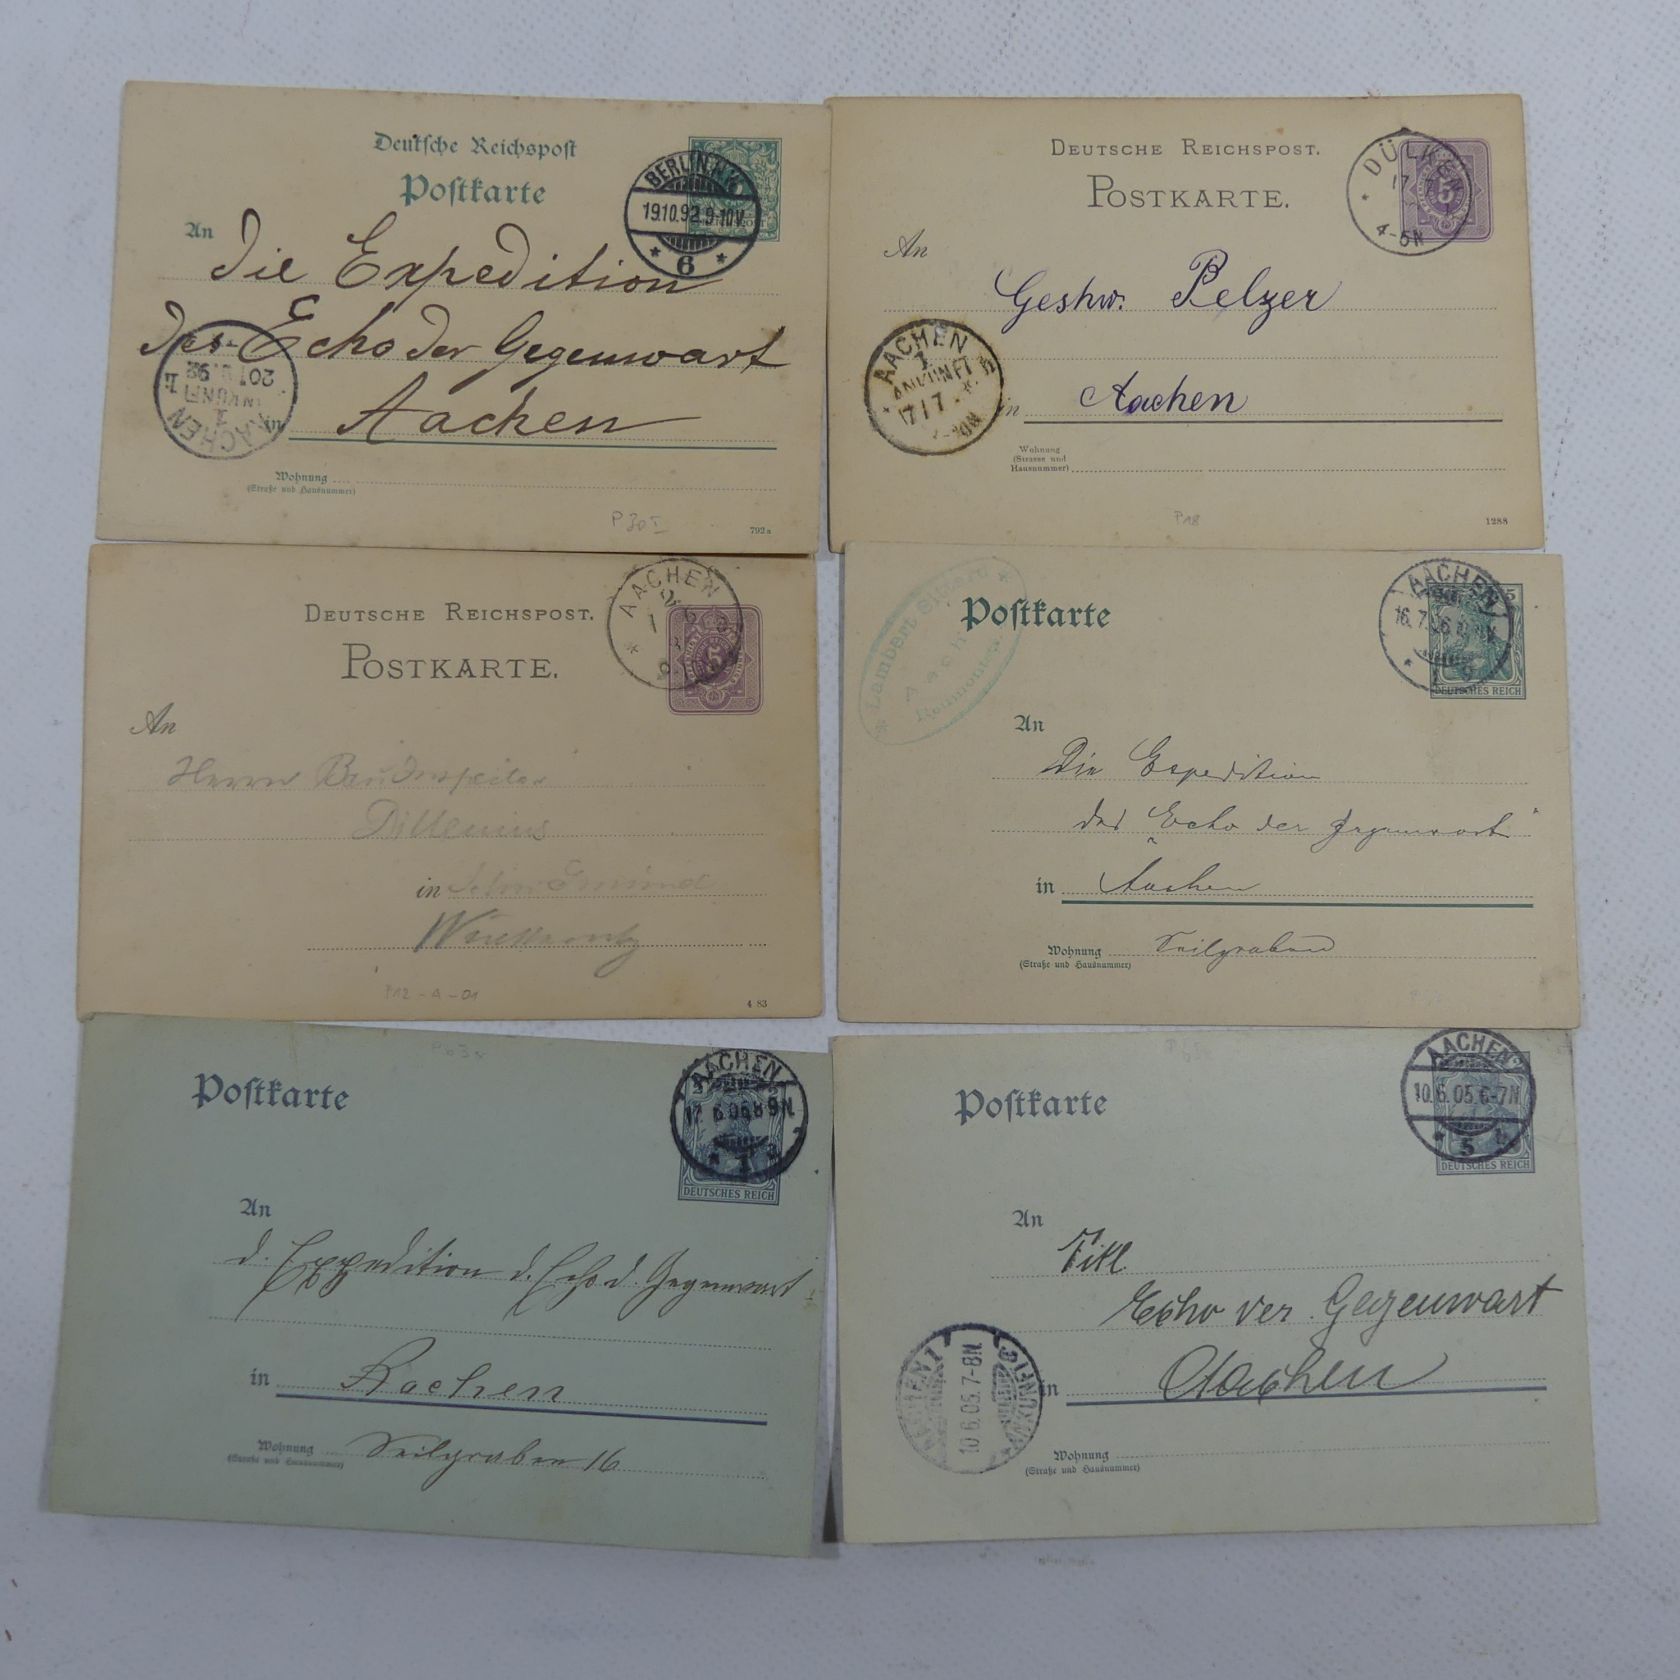 Deutsche Reichspost
Postkarte
BERLIN.N.W.
19.10.92.9-10V.
* 6 *
An
Die Expedition
des Echo der Gegenwart
in Aachen
AACHEN
1
ANKUNFT
20
Wohnung
(Straße und Hausnummer)
P30I
792a
DEUTSCHE REICHSPOST.
POSTKARTE.
DÜLKEN
17
4-5N
5
An
Geshw. Pelzer
in Aachen
AACHEN
1
ANKUNFT
17/7
Wohnung
(Strasse und
Hausnummer)
P18
1288
DEUTSCHE REICHSPOST.
POSTKARTE.
* AACHEN
5
An
Herrn
Dillenius
in
P12-A-01
4 83
Lambert
Postkarte
AACHEN
16.7.06
DEUTSCHES REICH
An
Die Expedition
des "Echo der Gegenwart"
in Aachen
Wohnung Seilgraben
(Straße und Hausnummer)
P63x
Postkarte
AACHEN
17.6.06.8-9N.
* 1 a
DEUTSCHES REICH
An
d. Expedition d. Echo d. Gegenwart
in Aachen
Wohnung Seilgraben 16
(Straße und Hausnummer)
Postkarte
AACHEN
10.6.05.6-7N.
* 5
DEUTSCHES REICH
An
Titl
Echo der Gegenwart
in Aachen
AACHEN 1
10.6.05.7-8N.
ANKUNFT
Wohnung
(Straße und Hausnummer)